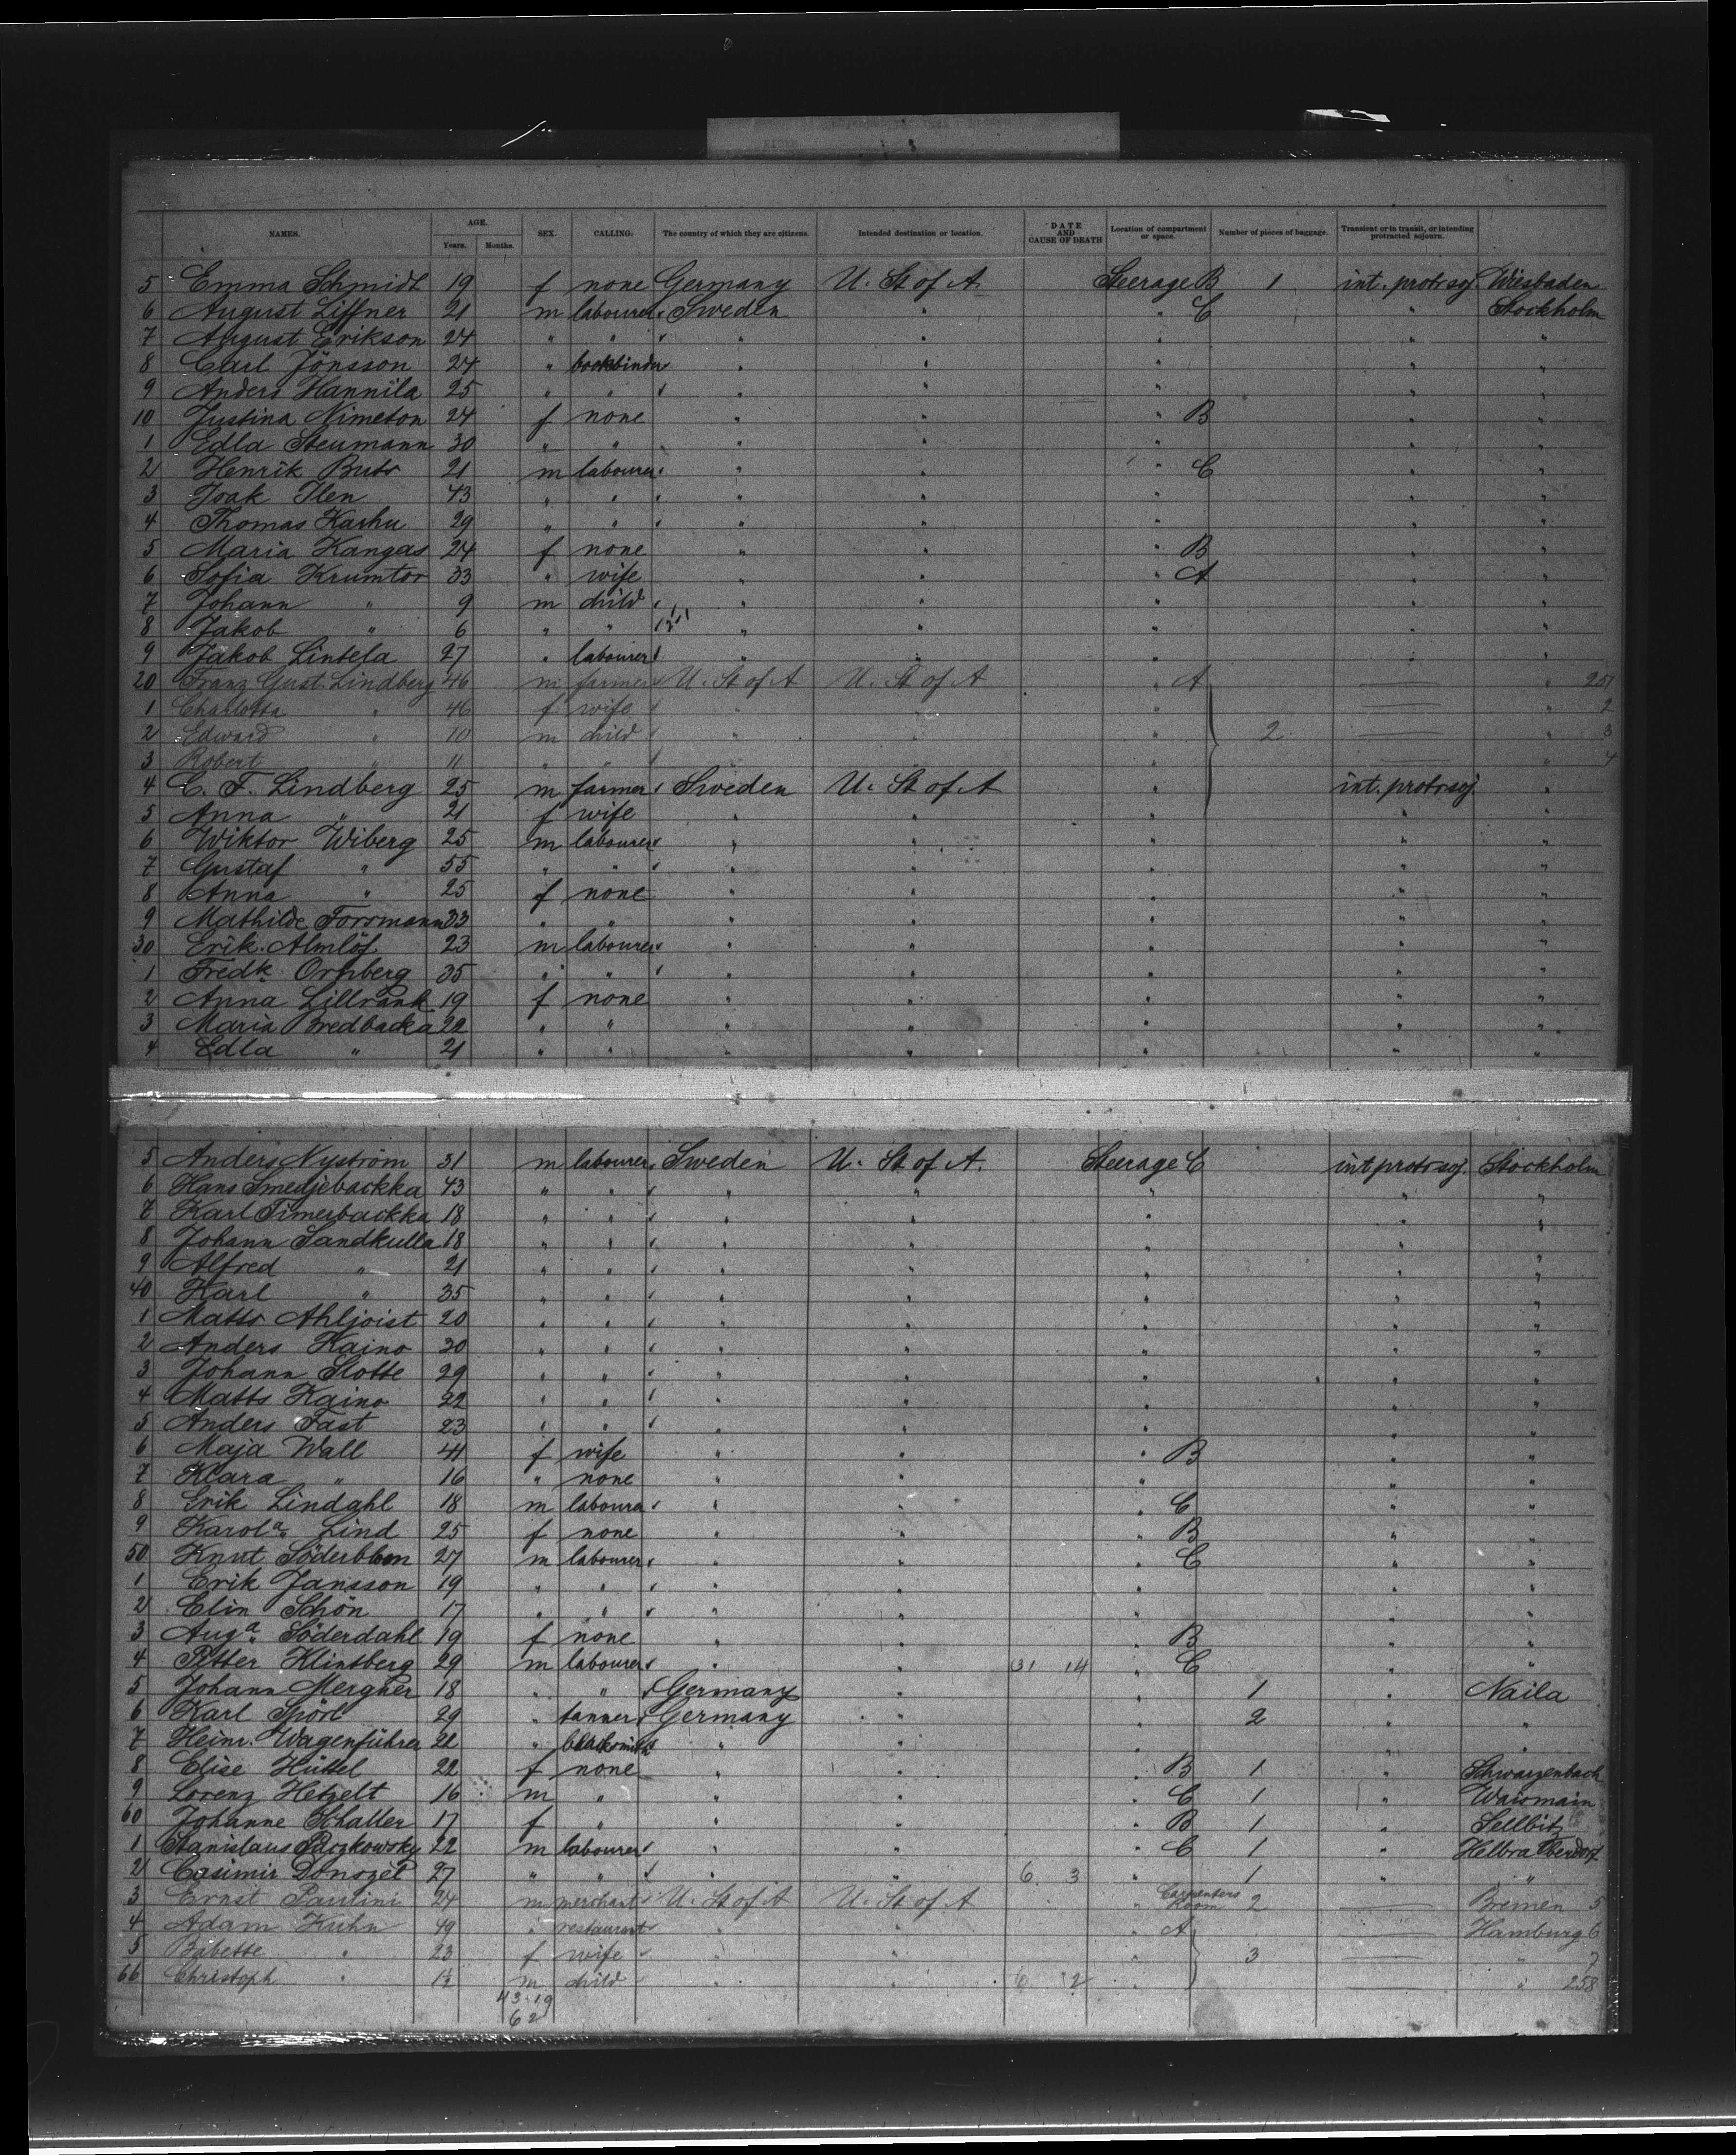 NAMES. AGE. Years. Months. SEX. CALLING. The country of which they are citizens. Intended destination or location. DATE AND CAUSE OF DEATH Location of compartment or space. Number of pieces of baggage. Transient or in transit, or intending protracted sojourn.
5 Emma Schmidt 19 f none Germany U. St of A Steerage B 1 int. protr soj. Wiesbaden
6 August Liffner 21 m labourer Sweden " " C " Stockholm
7 August Erikson 24 " " " " " " "
8 Carl Jönsson 24 " bookbinder " " " " "
9 Anders Hannila 25 " " " " " " "
10 Justina Nimeton 24 f none " " " B " "
1 Edla Steumann 30 " " " " " " "
2 Henrik Buts 21 m labourer " " " C " "
3 Joak Ilen 43 " " " " " " "
4 Thomas Karhu 29 " " " " " " "
5 Maria Kangas 24 f none " " " B " "
6 Sofia Krumtor 33 " wife " " " A " "
7 Johann " 9 m child " " " " "
8 Jakob " 6 " " " " " " "
9 Jakob Lintela 27 " labourer " " " " "
20 Franz Gust. Lindberg 46 m farmer U. St of A U. St of A " A — " 251
1 Charlotta " 46 f wife " " " — " 2
2 Edward " 10 m child " " " 2 — " 3
3 Robert " 11 " " " " " — " 4
4 C. F. Lindberg 25 m farmer Sweden U. St of A " int. protr soj. "
5 Anna " 21 f wife " " " " "
6 Wiktor Wiberg 25 m labourer " " " " "
7 Gustaf " 55 " " " " " " "
8 Anna " 25 f none " " " " "
9 Mathilde Forsmann 33 " " " " " " "
30 Erik Almlöf 23 m labourer " " " " "
1 Fredk. Ornberg 35 " " " " " " "
2 Anna Lillrank 19 f none " " " " "
3 Maria Bredbacka 22 " " " " " " "
4 Edla " 21 " " " " " " "
5 Anders Nyström 31 m labourer Sweden U. St of A. Steerage C int protr soj. Stockholm
6 Hans Smedjebackka 43 " " " " " " "
7 Karl Timerbackka 18 " " " " " " "
8 Johann Sandkulla 18 " " " " " " "
9 Alfred " 21 " " " " " " "
40 Karl " 35 " " " " " " "
1 Matts Ahljoist 20 " " " " " " "
2 Anders Kaino 30 " " " " " " "
3 Johann Slotte 29 " " " " " " "
4 Matts Kaino 22 " " " " " " "
5 Anders Fast 23 " " " " " " "
6 Maja Wall 41 f wife " " " B " "
7 Klara " 16 " none " " " " "
8 Erik Lindahl 18 m labourer " " " C " "
9 Karola Lind 25 f none " " " B " "
50 Knut Söderblom 27 m labourer " " " C " "
1 Erik Jansson 19 " " " " " " "
2 Elin Schön 17 " " " " " " "
3 Auga. Söderdahl 19 f none " " " B " "
4 Petter Klintberg 29 m labourer " " 31 14 " C " "
5 Johann Mergner 18 " " Germany " " 1 " Naila
6 Karl Spörl 29 " tanner Germany " " 2 " "
7 Heinr. Wagenführer 22 " blacksmith " " " " "
8 Elise Hüttel 22 f none " " " B 1 " Schwarzenbach
9 Lorenz Hetzelt 16 m " " " " C 1 " Waismain
60 Johanne Schaller 17 f " " " " B 1 " Sellbitz
1 Stanislaus 22 m labourer " " " C 1 " Helbra
2 Casimir Donozel 27 " " " " 6 3 " 1 " "
3 Ernst Paulini 24 m merchant U. St of A U. St of A " Carpenters Room 2 — Bremen 5
4 Adam Kuhn 49 " restaurant " " " A — Hamburg 6
5 Babette " 23 f wife " " " 3 — " 7
66 Christoph " 1½ m child " " 6 2 " — " 258
43.19
62